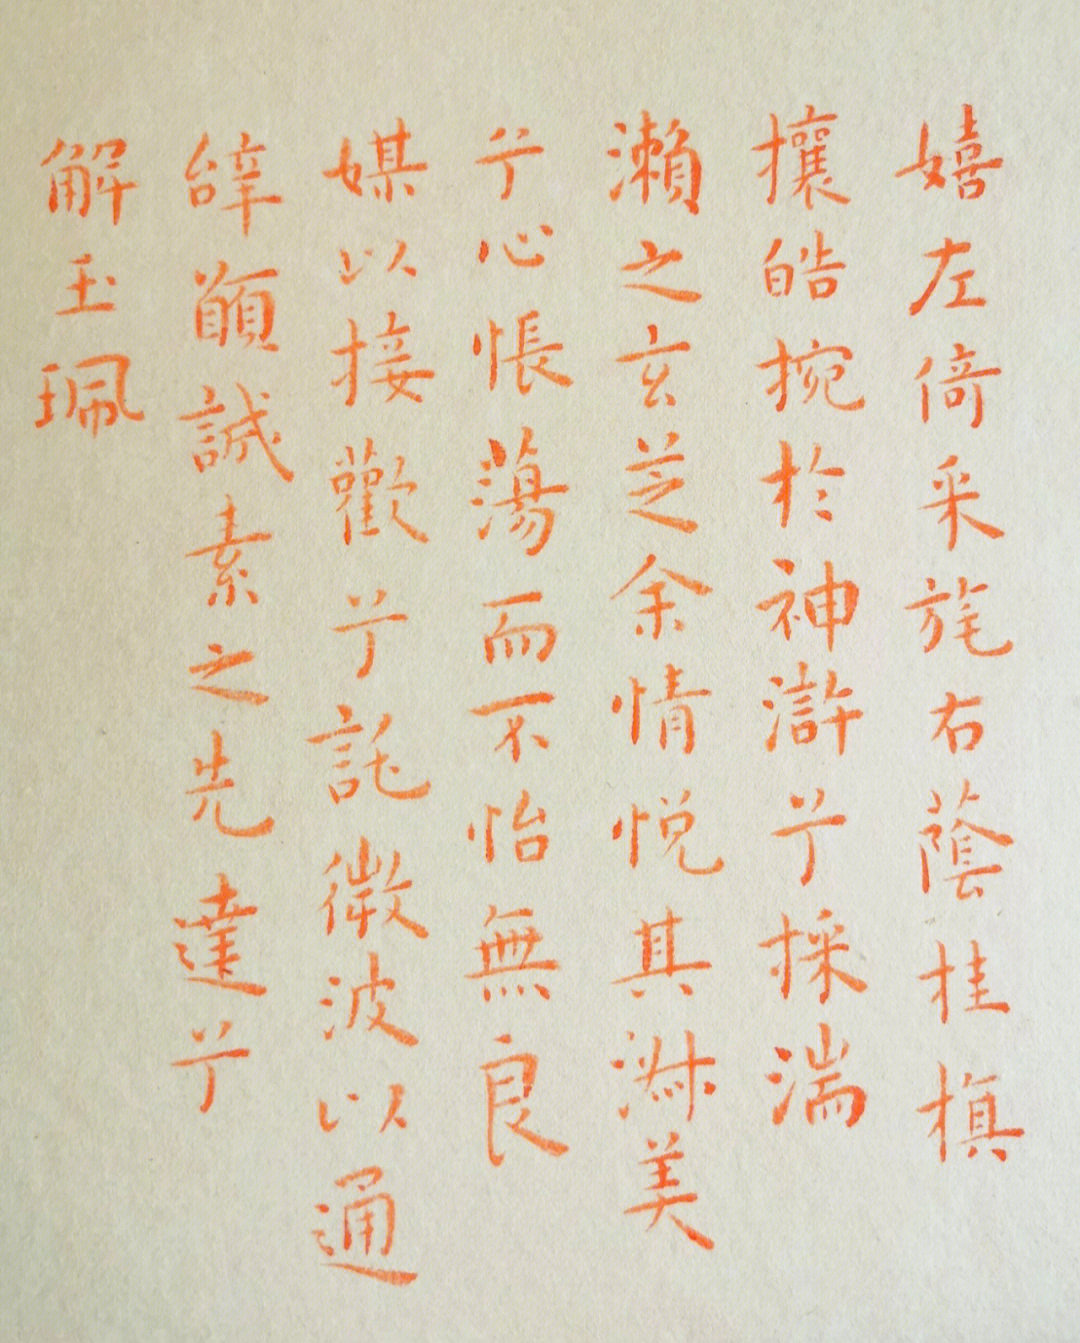 嬉左倚采旄右蔭桂旗
攘皓捥於神滸兮採湍
瀨之玄芝余情悅其淑美
兮心悵蕩而不怡無良
媒以接歡兮託微波以通
辭願誠素之先達兮
解玉珮